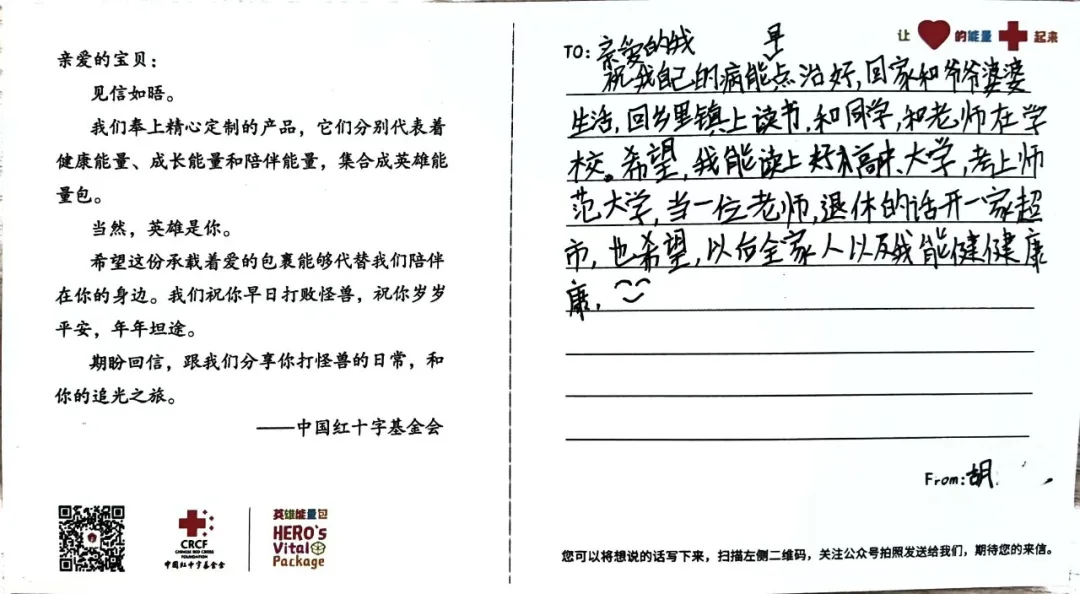 亲爱的宝贝：
见信如晤。
我们奉上精心定制的产品，它们分别代表着
健康能量、成长能量和陪伴能量，集合成英雄能
量包。
当然，英雄是你。
希望这份承载着爱的包裹能够代替我们陪伴
在你的身边。我们祝你早日打败怪兽，祝你岁岁
平安，年年坦途。
期盼回信，跟我们分享你打怪兽的日常，和
你的追光之旅。
——中国红十字基金会
CRCF
CHINESE RED CROSS
FOUNDATION
中国红十字基金会
英雄能量包
HERO's
Vital
Package
让 的能量 起来
TO: 亲爱的我
祝我自己的病能早点治好，回家和爷爷婆婆
生活，回乡里镇上读书，和同学，和老师在学
校。希望，我能读上好高中、大学，考上师
范大学，当一位老师，退休的话开一家超
市，也希望，以后全家人以及我能健健康
康．
From: 胡
您可以将想说的话写下来，扫描左侧二维码，关注公众号拍照发送给我们，期待您的来信。